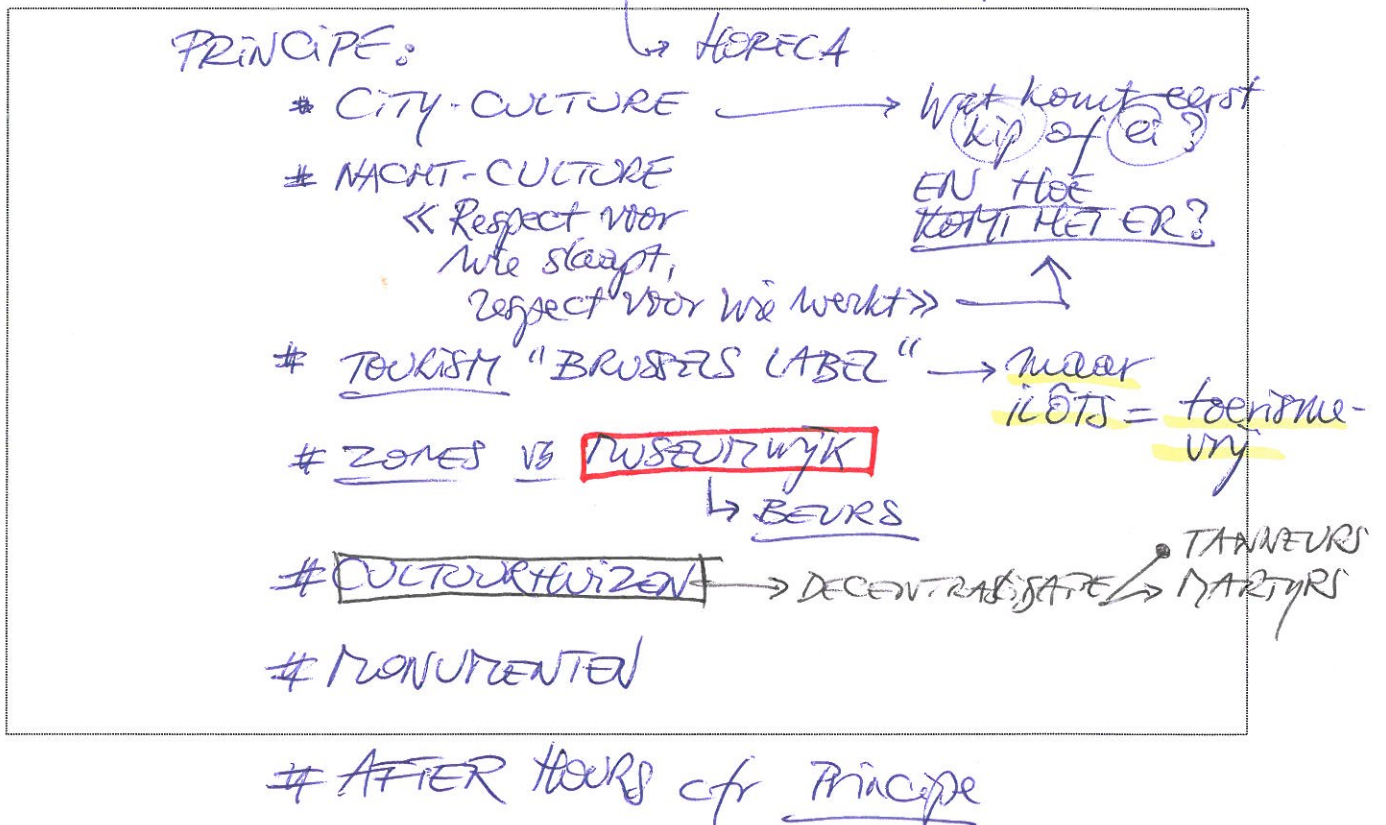 ↳ HORECA
PRINCIPE:
# CITY-CULTURE → Wat komt eerst
kip of ei?
# NACHT-CULTURE EN HOE
KOMT HET ER?
« Respect voor
wie slaapt,
respect voor wie werkt» →
# TOURISM "BRUSSELS LABEL" → maar
ILÔTS = toerisme-
vrij
# ZONES VB MUSEUMWIJK
↳ BEURS
# CULTUURHUIZEN → DECENTRALISATIE → • TANNEURS
MARTYRS
# MONUMENTEN
# AFTER HOURS cfr Principe